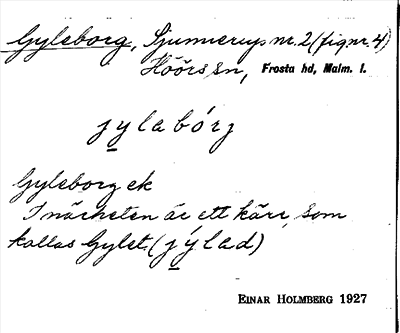 Gyleborg, Sjunnerup nr. 2 (fig nr. 4)
Höörs sn, Frosta hd, Malm. l.
jylabórj
Gyleborg ek
I närheten är ett kärr, som
kallas Gylet. (jýlad)
EINAR HOLMBERG 1927